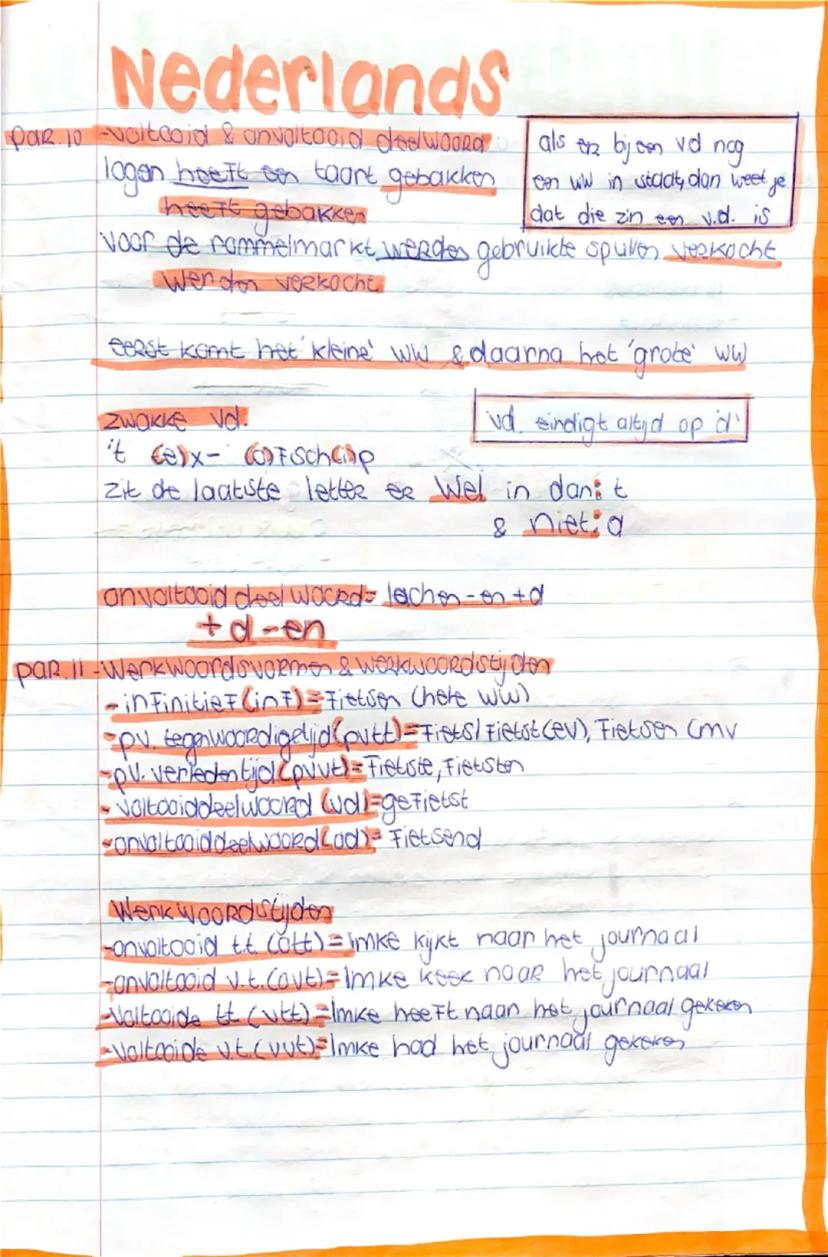 Nederlands
par.10 -voltooid & onvoltooid deelwoord
logan heeft een taart gebakken
heeft gebakken
als er bij een vd nog
een ww in staat, dan weet je
dat die zin een v.d. is
voor de rommelmarkt werden gebruikte spullen verkocht
werden verkocht
eerst komt het 'kleine' ww & daarna het 'grote' ww
zwakke vd.
vd. eindigt altijd op 'd'
't (e)x- (o)fsch(i)p
zit de laatste letter er wel in dan: t
& niet: d
onvoltooid deelwoord= lachen - en +d
+d-en
par.11 -Werkwoordsvormen & werkwoordstijden
- infinitief (inf)= fietsen (hele ww)
-pv. tegenwoordigetijd(pvtt)=Fiets/Fietst(ev), Fietsen (mv
-pv. verledentijd(pvvt)=Fietste, Fietsten
- voltooiddeelwoord (vd)=gefietst
-onvoltooiddeelwoord(od)= Fietsend
Werkwoordstijden
-onvoltooid t.t. (ott)=Imke kijkt naar het journaal
-onvoltooid v.t.(ovt)=Imke keek naar het journaal
-Voltooide tt (vtt)=Imke heeft naar het journaal gekeken
-Voltooide v.t.(vvt)=Imke had het journaal gekeken